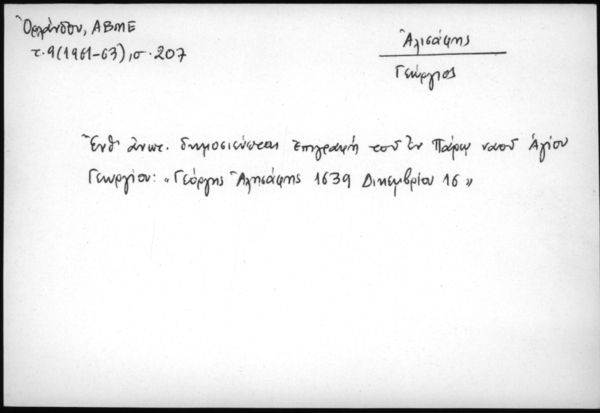 Ὀρλάνδου, ΑΒΜΕ
τ. 9 (1961-63), σ. 207
Ἀλισάφης
Γεώργιος
Ἔνθ' ἀνωτ. δημοσιεύεται ἐπιγραφή τοῦ ἐν Πάρῳ ναοῦ Ἁγίου
Γεωργίου: «Γεόργης Ἀλησάφης 1639 Δικεμβρίου 16»